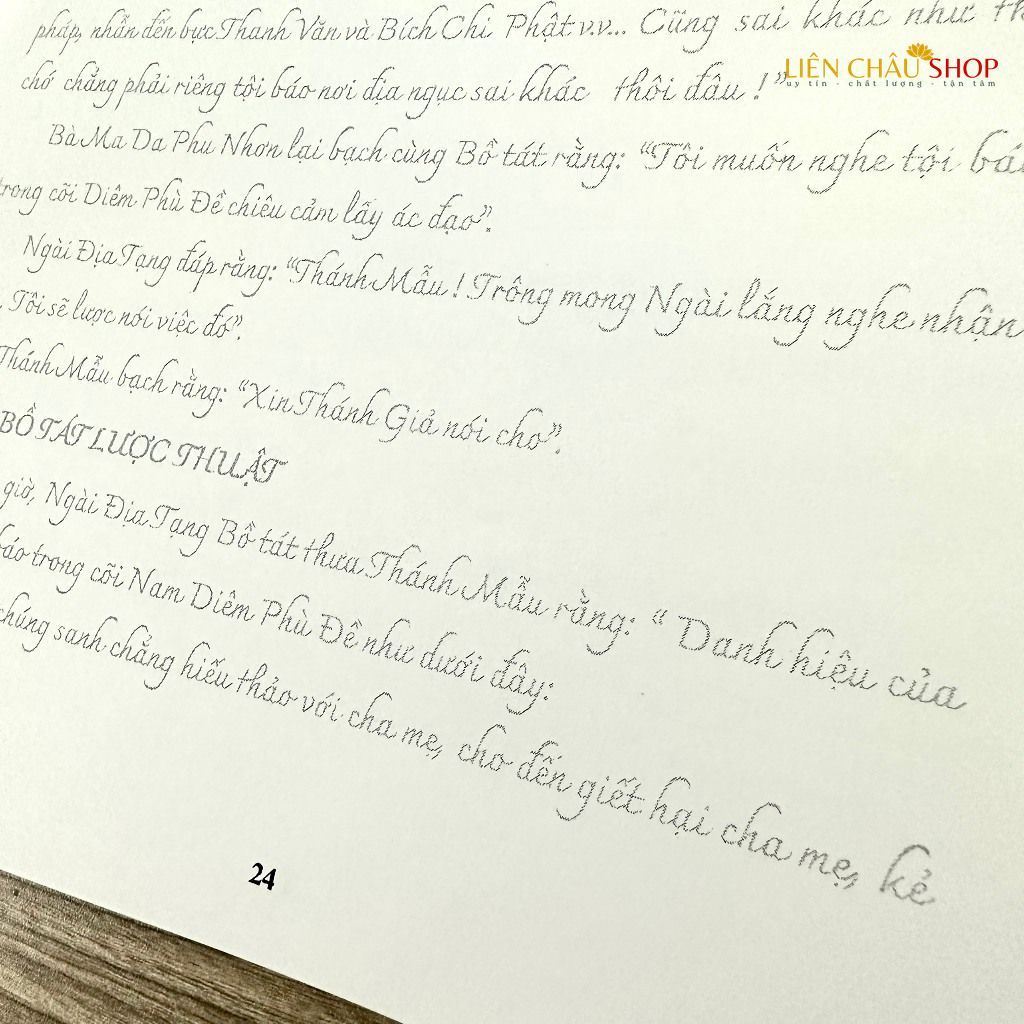 pháp, nhẫn đến bực Thanh Văn và Bích Chi Phật v.v... Cũng sai khác như
chớ chẳng phải riêng tội báo nơi địa ngục sai khác thôi đâu !”
LIÊN CHÂU SHOP
uy tín - chất lượng - tận tâm
Bà Ma Da Phu Nhơn lại bạch cùng Bồ tát rằng: “Tôi muốn nghe tội
trong cõi Diêm Phù Đề chiêu cảm lấy ác đạo”.
Ngài Địa Tạng đáp rằng: “Thánh Mẫu ! Trông mong Ngài lắng nghe nhận
. Tôi sẽ lược nói việc đó”.
Thánh Mẫu bạch rằng: “Xin Thánh Giả nói cho”.
BỒ TÁT LƯỢC THUẬT
giờ, Ngài Địa Tạng Bồ tát thưa Thánh Mẫu rằng: “ Danh hiệu của
báo trong cõi Nam Diêm Phù Đề như dưới đây:
chúng sanh chẳng hiếu thảo với cha mẹ, cho đến giết hại cha mẹ, kẻ
24